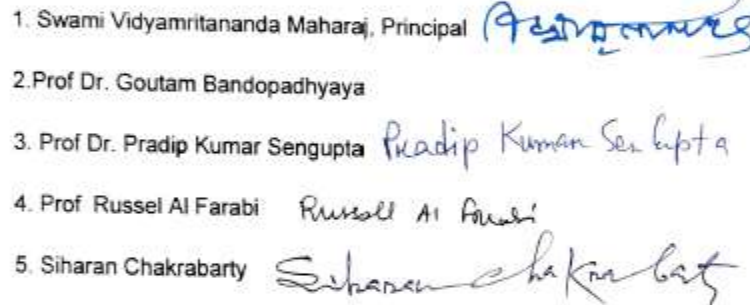 1. Swami Vidyamritananda Maharaj, Principal
2.Prof Dr. Goutam Bandopadhyaya
3. Prof Dr. Pradip Kumar Sengupta Pradip Kumar Sen Gupta
4. Prof Russel Al Farabi Russell Al Farabi
5. Siharan Chakrabarty Siharan Chakrabarty